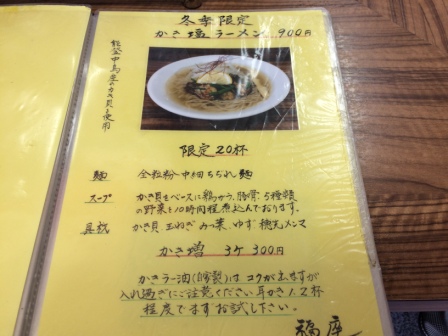 冬季限定
かき塩ラーメン 900円
能登中島産のかき貝を使用
限定20杯
麺 全粒粉 中細ちぢれ麺
スープ かき貝をベースに鶏がら、豚骨、5種類
の野菜を10時間程煮込んでおります。
具 かき貝 玉ねぎ みつ葉、ゆず 穂先メンマ
かき増 3ケ 300円
かきラー油(自家製)は、コクがでますが
入れ過ぎにご注意ください。耳かき1、2杯
程度でますお試し下さい。
福座